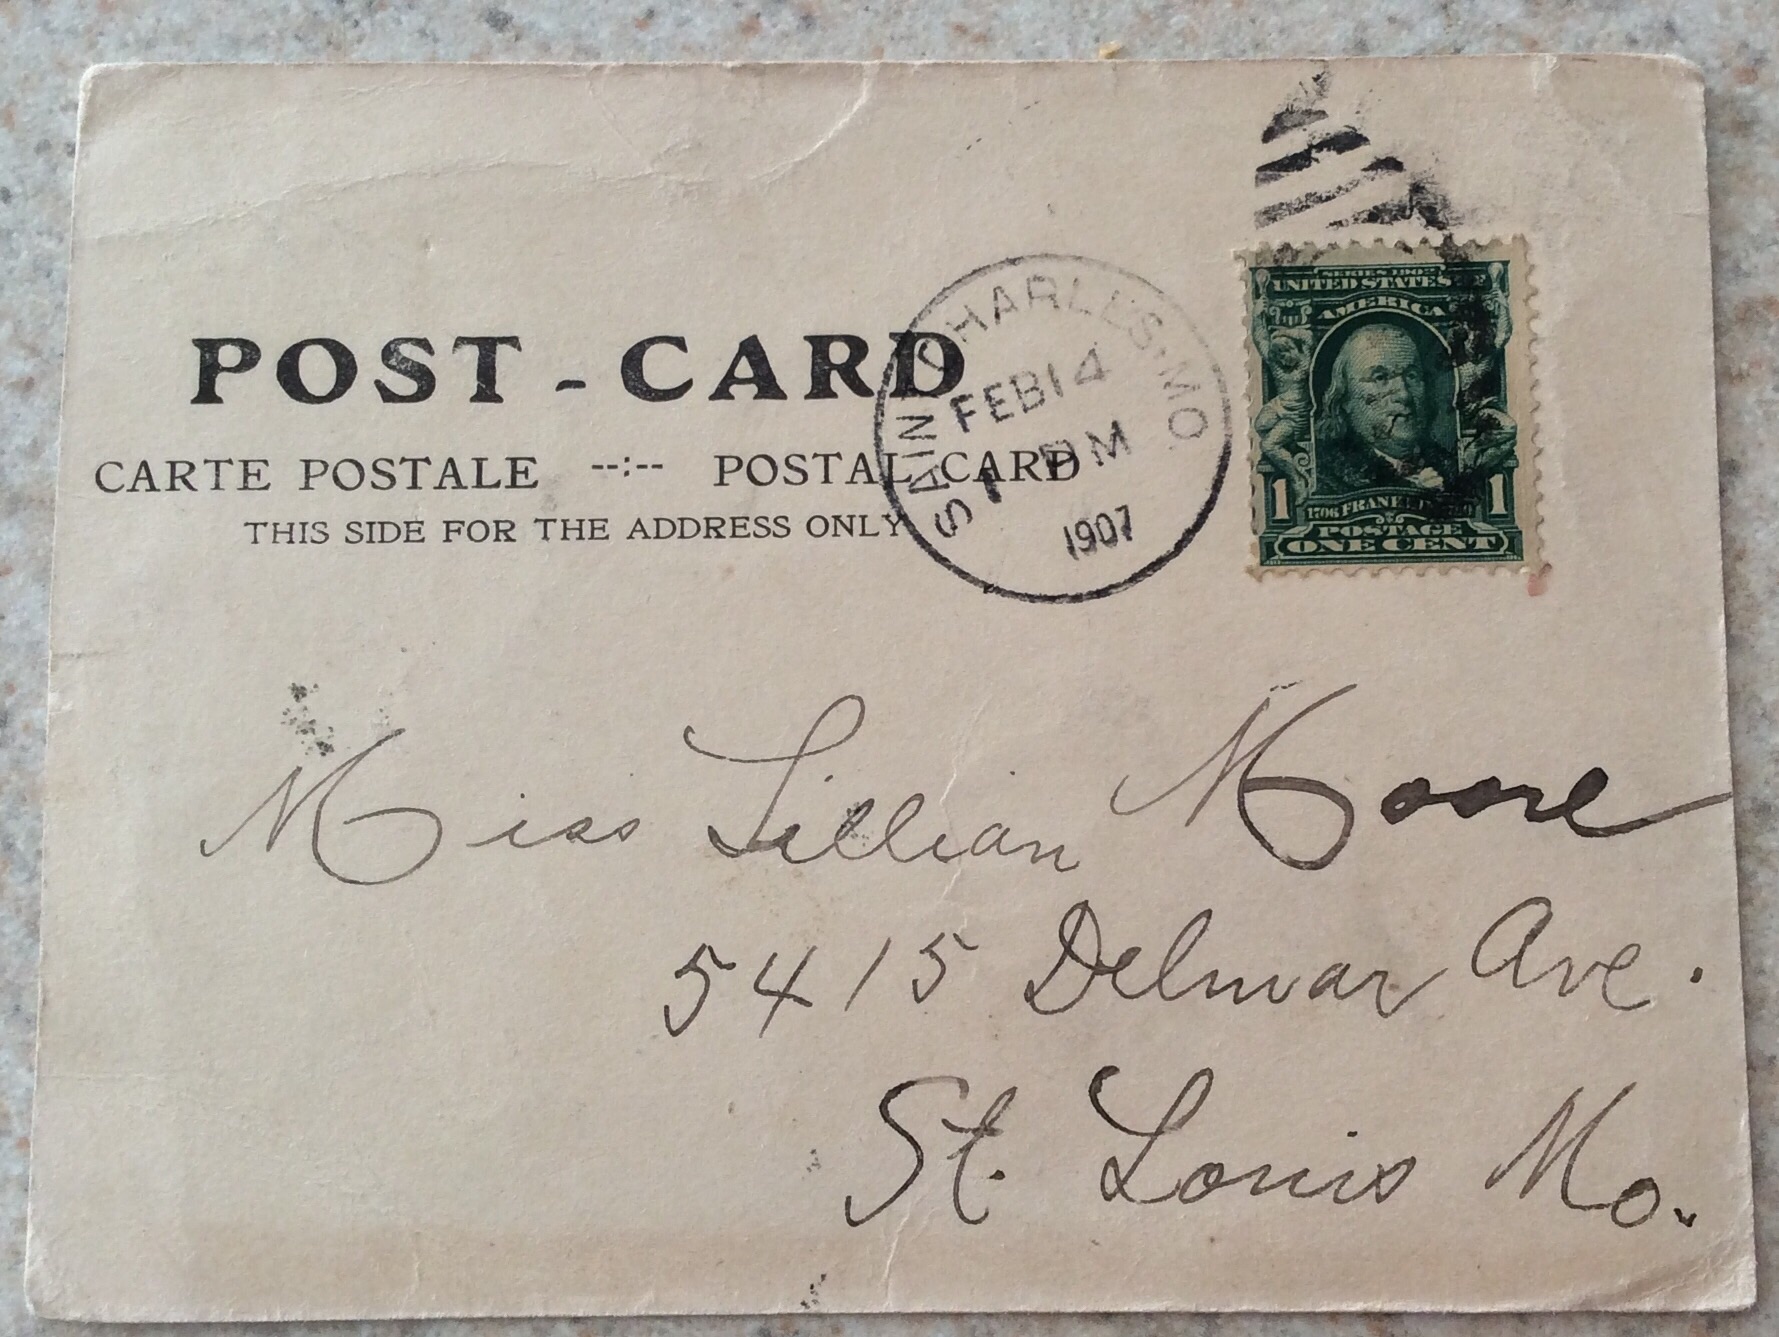 POST - CARD
CARTE POSTALE --:-- POSTAL CARD
THIS SIDE FOR THE ADDRESS ONLY
SAINT CHARLES. MO.
FEB 14
PM
1907
SERIES 1902
UNITED STATES OF
AMERICA
1706 FRANKLIN 1790
1 1
POSTAGE
ONE CENT
Miss Lillian Moore
5415 Delmar Ave.
St. Louis Mo.